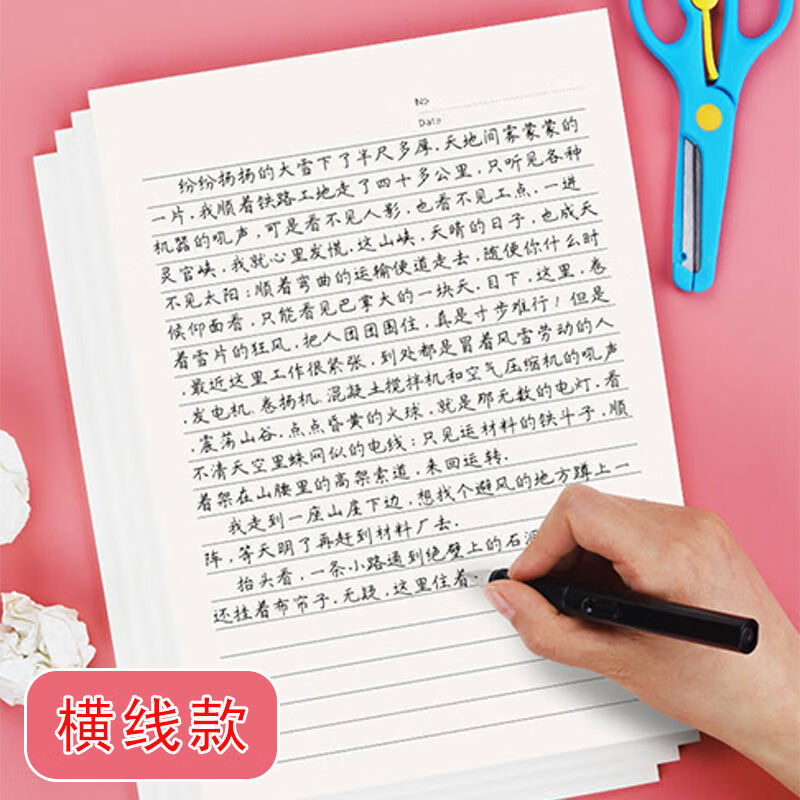 No
Date
纷纷扬扬的大雪下了半尺多厚.天地间雾蒙蒙的
一片.我顺着铁路工地走了四十多公里,只听见各种
机器的吼声,可是看不见人影,也看不见工点.一进
灵官峡,我就心里发慌.这山峡,天晴的日子,也成天
不见太阳;顺着弯曲的运输便道走去,随便你什么时
候仰面看,只能看见巴掌大的一块天.目下,这里,卷
着雪片的狂风,把人团团围住,真是寸步难行!但是
,最近这里工作很紧张,到处都是冒着风雪劳动的人
.发电机.卷扬机.混凝土搅拌机和空气压缩机的吼声
,震荡山谷.点点昏黄的火球,就是那无数的电灯.看
不清天空里蛛网似的电线;只见运材料的铁斗子,顺
着架在山腰里的高架索道,来回运转.
我走到一座山崖下边,想找个避风的地方蹲上一
阵,等天明了再赶到材料厂去.
抬头看,一条小路通到绝壁上的石
还挂着布帘子.无疑,这里住着
横线款